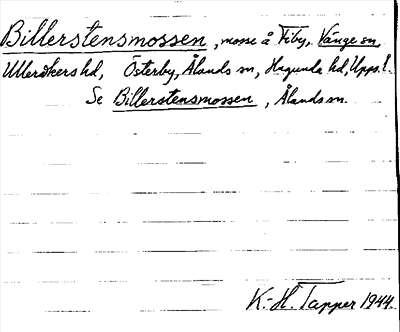 Billerstensmossen, mosse å Viby, Vänge sn,
Ulleråkers hd, Österby, Ålands sn, Hagunda hd, Upps. l.
Se Billerstensmossen, Ålands sn.
K.-H. Tapper 1944.